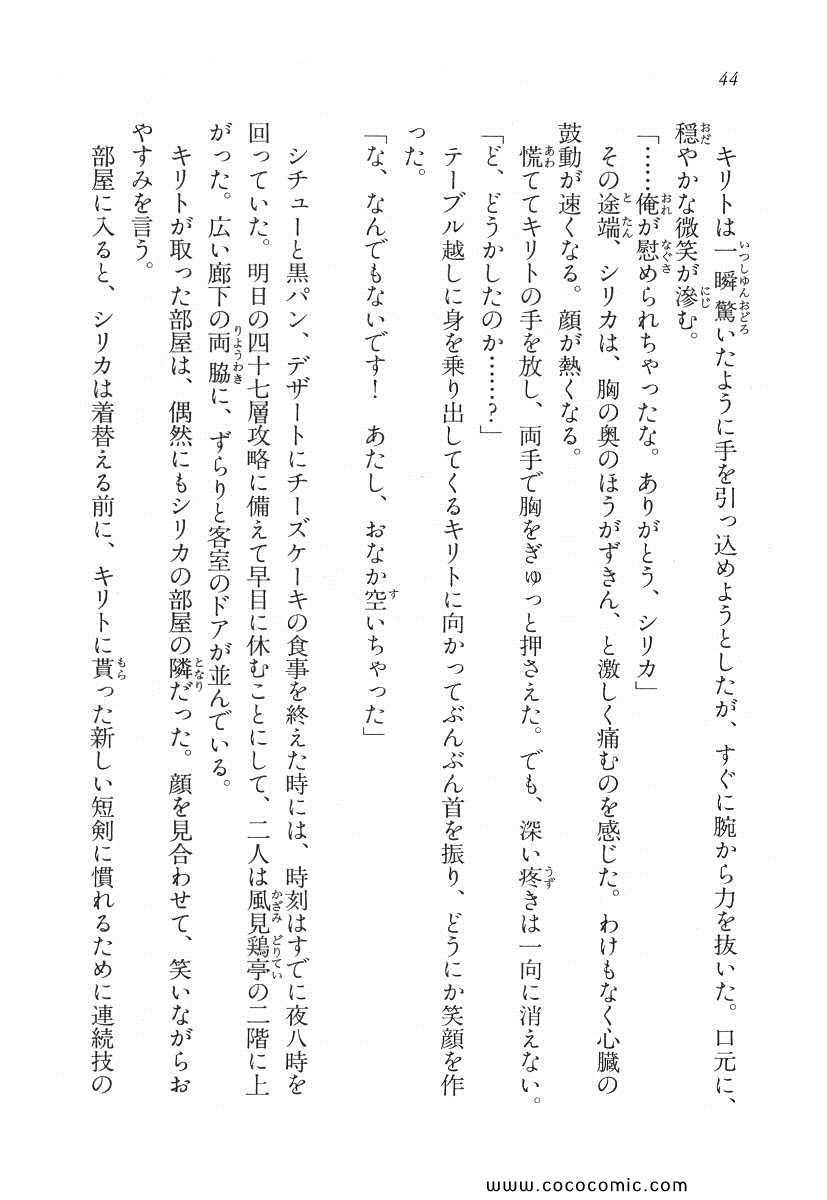 44
キリトは一瞬驚いたように手を引っ込めようとしたが、すぐに腕から力を抜いた。口元に、
穏やかな微笑が滲む。
「……俺が慰められちゃったな。ありがとう、シリカ」
その途端、シリカは、胸の奥のほうがずきん、と激しく痛むのを感じた。わけもなく心臓の
鼓動が速くなる。顔が熱くなる。
慌ててキリトの手を放し、両手で胸をぎゅっと押さえた。でも、深い疼きは一向に消えない。
「ど、どうかしたのか……?」
テーブル越しに身を乗り出してくるキリトに向かってぶんぶん首を振り、どうにか笑顔を作
った。
「な、なんでもないです! あたし、おなか空いちゃった」
シチューと黒パン、デザートにチーズケーキの食事を終えた時には、時刻はすでに夜八時を
回っていた。明日の四十七層攻略に備えて早目に休むことにして、二人は風見鶏亭の二階に上
がった。広い廊下の両脇に、ずらりと客室のドアが並んでいる。
キリトが取った部屋は、偶然にもシリカの部屋の隣だった。顔を見合わせて、笑いながらお
やすみを言う。
部屋に入ると、シリカは着替える前に、キリトに貰った新しい短剣に慣れるために連続技の
www.cococomic.com